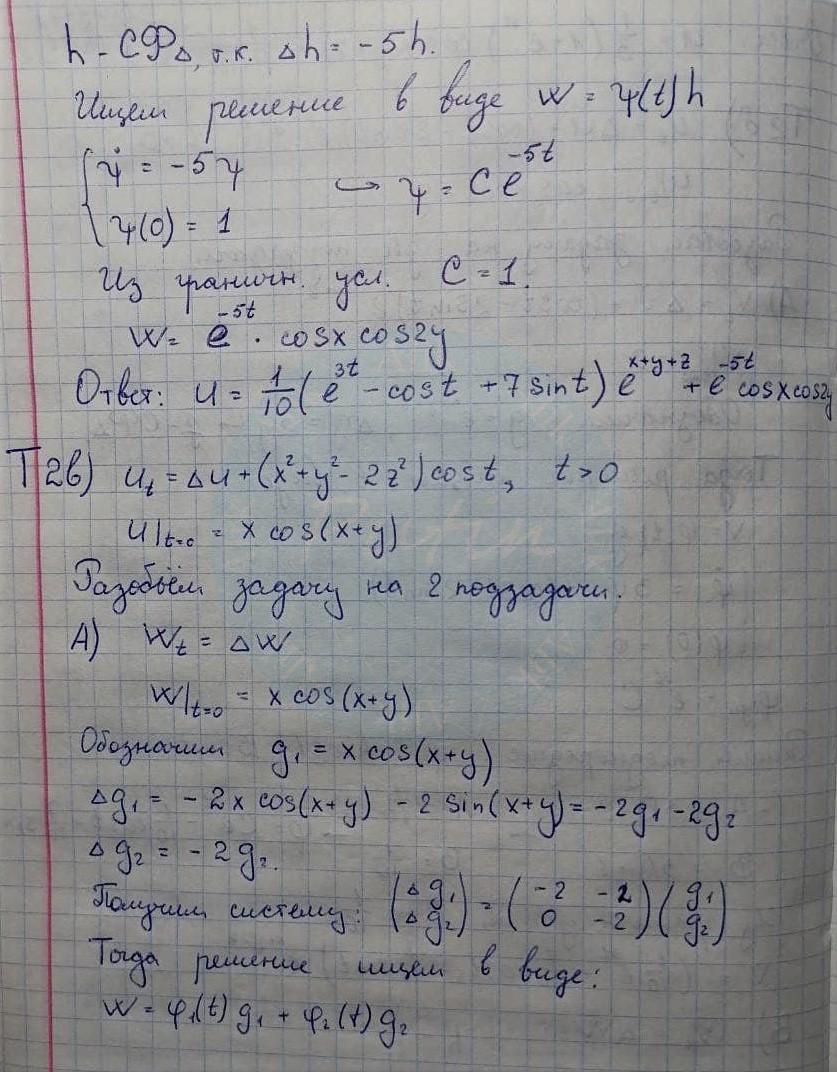 h - СФ_Δ, т.к. Δh = -5h.
Ищем решение в виде w = ψ(t)h
{ ψ̇ = -5ψ
ψ(0) = 1 ↪ ψ = Ce^{-5t}
Из граничн. усл. C = 1.
w = e^{-5t} · cosx cos2y
Ответ: u = 1/10 (e^{3t} - cost + 7sint) e^{x+y+z} + e^{-5t} cosxcos2y
T2в) u_t = Δu + (x² + y² - 2z²) cost, t > 0
u|_{t=0} = x cos(x+y)
Разобьём задачу на 2 подзадачи.
А) w_t = Δw
w|_{t=0} = x cos(x+y)
Обозначим g₁ = x cos(x+y)
Δg₁ = -2x cos(x+y) - 2 sin(x+y) = -2g₁ - 2g₂
Δg₂ = -2g₂.
Получим систему: (Δg₁ Δg₂) = (-2 -2 0 -2)(g₁ g₂)
Тогда решение ищем в виде:
w = φ₁(t)g₁ + φ₂(t)g₂